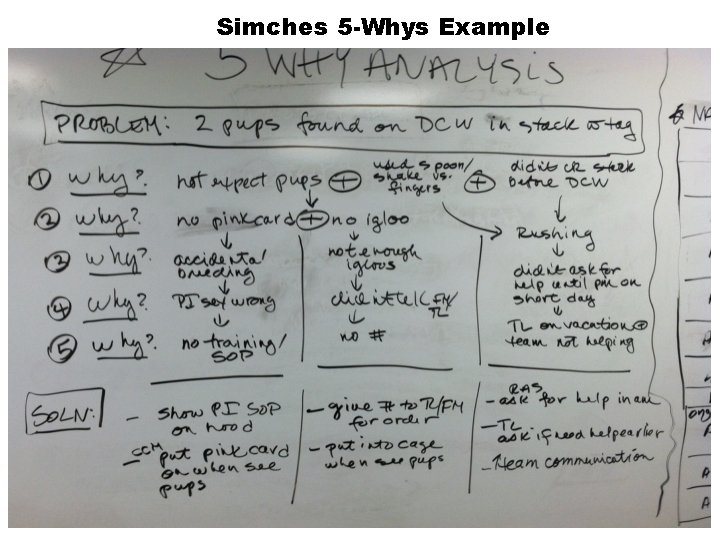 Simches 5-Whys Example
5 WHY ANALYSIS
PROBLEM: 2 pups found on DCW in stack w tag
① Why? not expect pups + used spoon/ shake vs. fingers + didn't CR stack before DCW
② Why? no pink card + no igloo
Rushing
③ Why? accidental breeding
not enough igloos
didn't ask for help until pm on short day
④ Why? PI sex wrong
didn't tell FM/ TL
TL on vacation + team not helping
⑤ Why? no training/ SOP
no #
SOLN:
- show PI SOP on hood
- CCM put pink card on when see pups
- give # to TL/FM for order
- put into cage when see pups
- RAS ask for help in am
- TL ask if need help earlier
- ↑team communication
NA